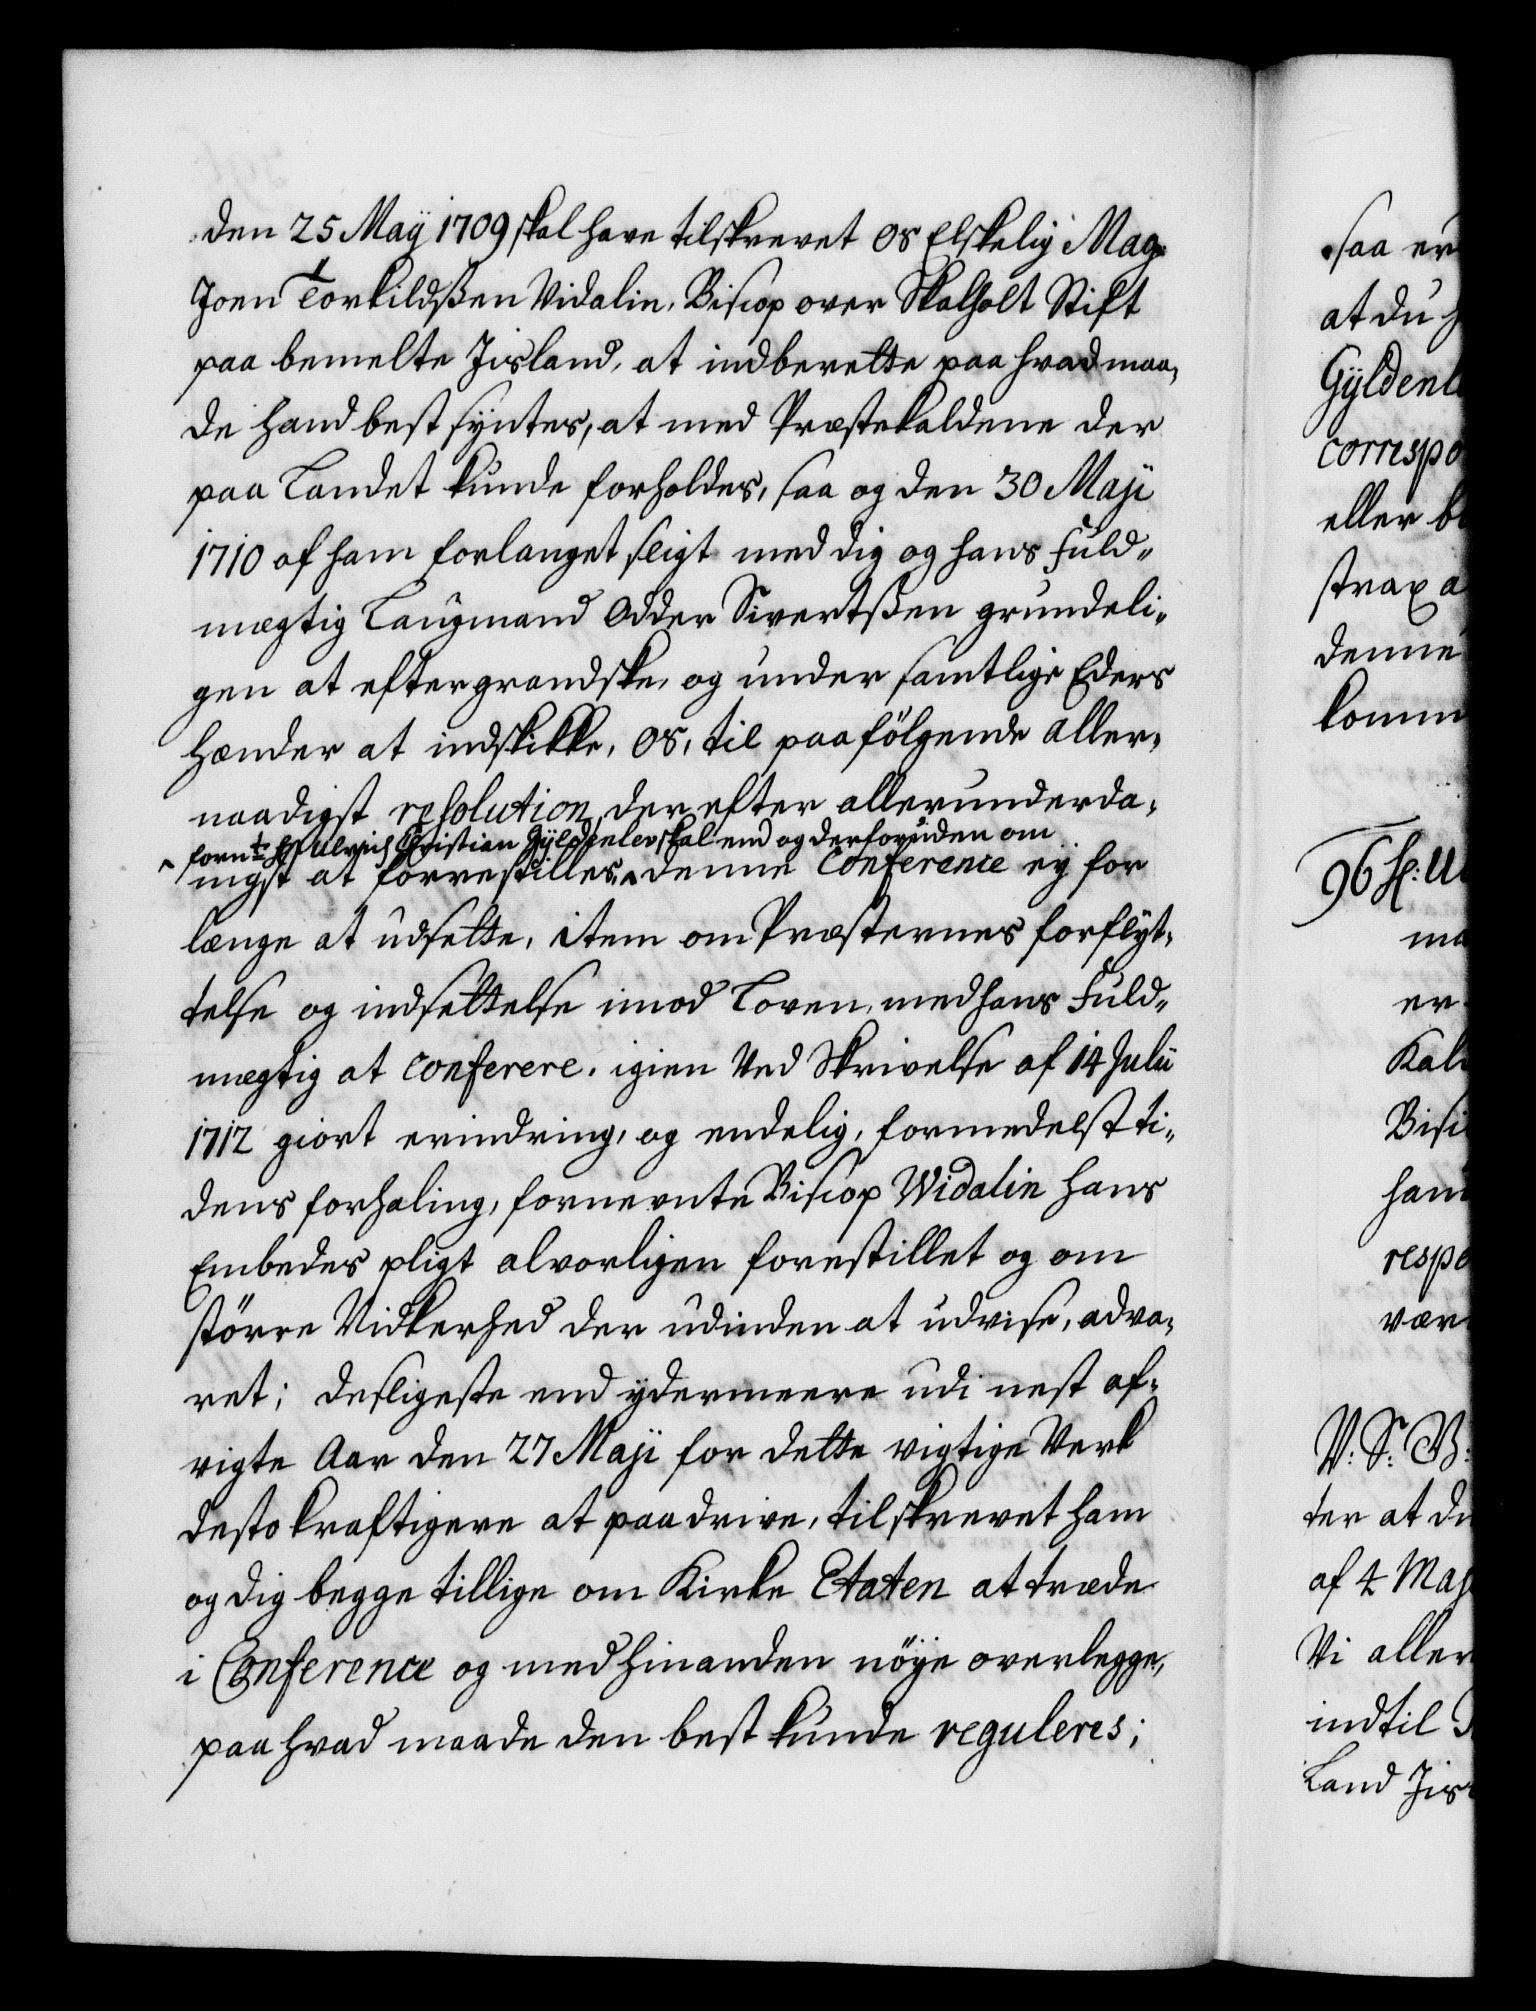 den 25 Maÿ 1709 skal have tilskrevet os Elskelig Mag:
Joen Torkildsßen Vidalin, Biscop over Skalholt Stift
paa bemelte Jisland, at indberette paa hvad maa-
de hand best sÿntes, at med Præstekaldene der
paa Landet kunde forholdes, saa og den 30 Maji
1710 af ham forlanget sligt med dig og hans Fuld-
mægtig Laugmand Odder Sivertsßen grundeli-
gen at eftergrandske, og under samtlige Eders
hænder at indskikke, os, til paafölgende aller-
naadigst resolution, der efter allerunderda-
fornte Hr Ulrich Christian Gÿldenlev skal end og derforuden om
nigst at forrestilles, denne Conference ej for
længe at udsette, item om Præsternes forflÿt-
telse og indsettelse imod Loven, med hans Fuld-
mægtig at conferere. igien Ved Skrivelse af 14 Julii
1712 giort erindring, og endelig, formedelst ti-
dens forhaling, fornevnte Biscop Widalin hans
Embedes pligt alvorligen forestillet og om
större Vidkerhed der udinden at udvise, adva-
ret; desligeste end ydermeere udi nest af-
vigte Aar den 27 Maji for dette vigtige Verk
desto kraftigere at paadrive, tilskrevet ham
og dig begge tillige om Kirke Etaten at træde
i Conference og med hinanden nöÿe overlegge,
paa hvad maade den best kunde reguleres;
saa er
at du
Gÿldenl
correspo
eller b
strax a
denne
komm
96 H: Ul
ma
er
Kal
Bis
ham
respo
vær
V: S: G:
ter at du
af 4 Maj
Vi aller
indtil
Land Jis